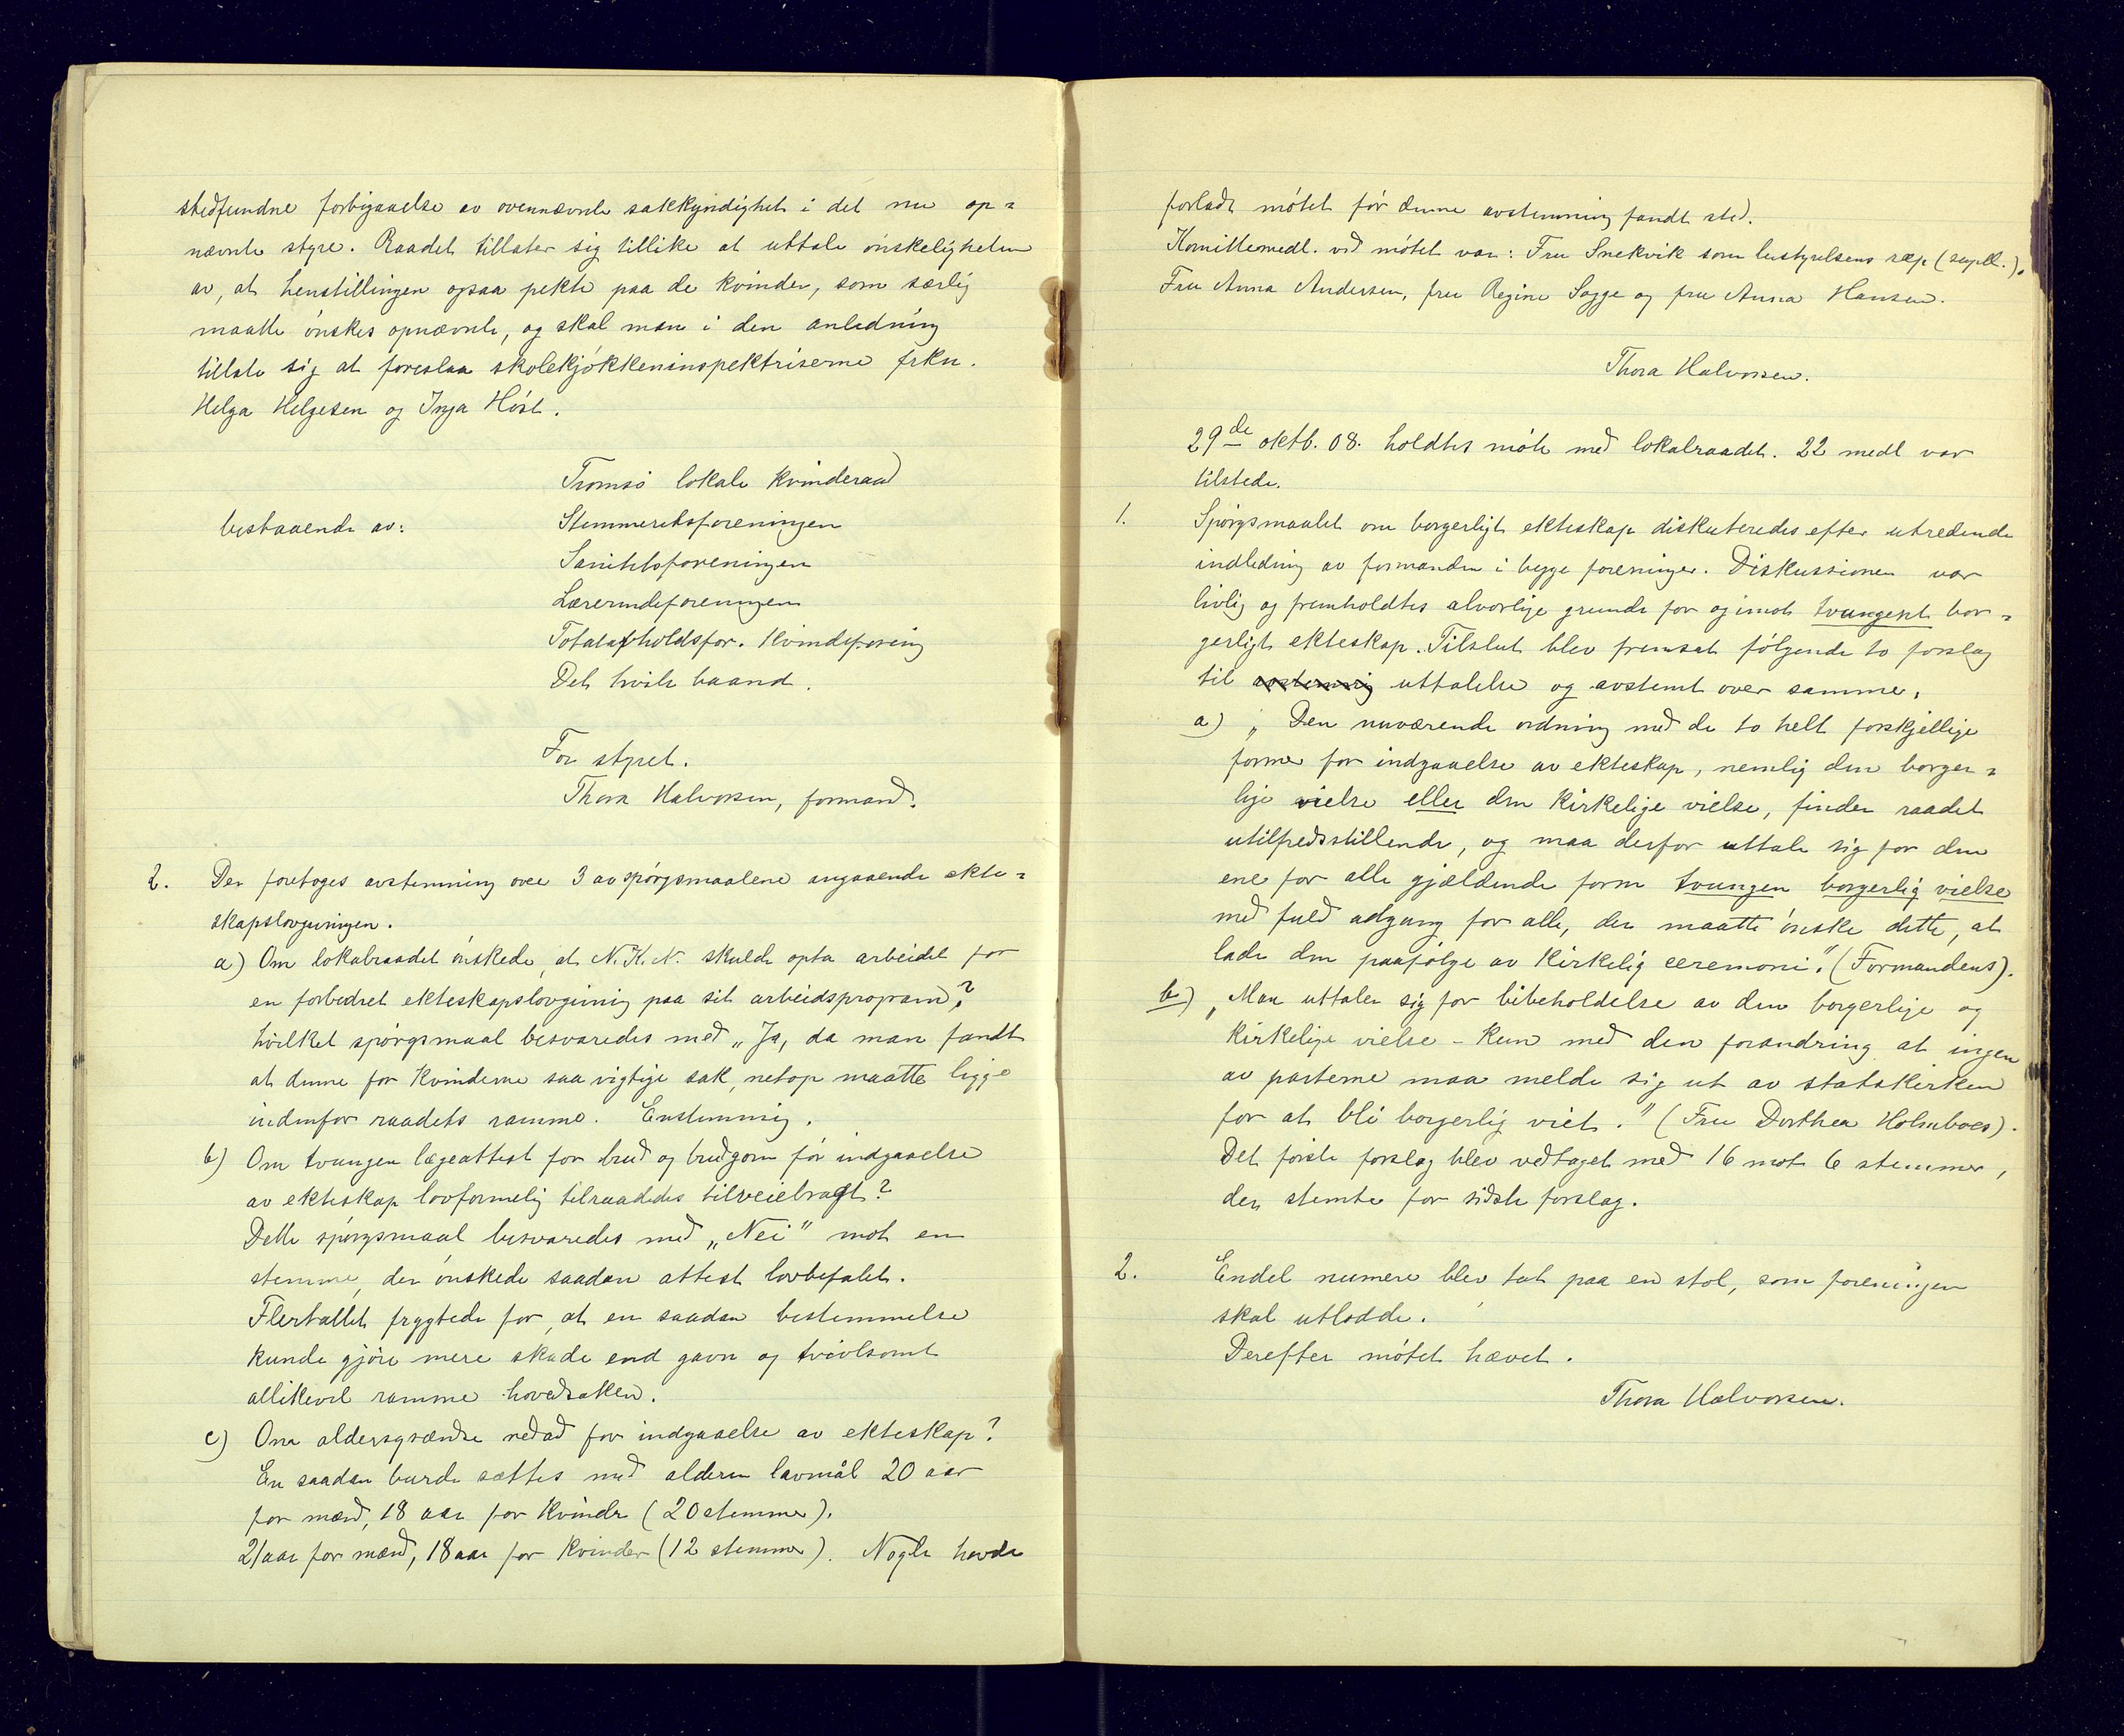 stedfundne forbigaaelse av ovennævnte sakkyndighet i det nu op=
nævnte styre. Raadet tillater sig tillike at uttale ønskeligheten
av, at henstillingen ogsaa pekte paa de kvinder, som særlig
maatte ønskes opnævnte, og skal man i den anledning
tillate sig at foreslaa skolekjøkkeninspektriserne frkn.
Helga Helgesen og Inga Høst.
Tromsø lokale kvinderaad
bestaaende av: Stemmeretsforeningen
Sanitetsforeningen
Lærerindeforeningen
Totalafholdsfor. Kvindeforening
Det hvite baand.
For styret.
Thora Halvorsen, formand.
2. Der foretoges avstemning over 3 av spørgsmaalene angaaende ekte=
skapslovgivningen.
a) Om lokalraadet ønskede, at N.K.N. skulde opta arbeidet for
en forbedret ekteskapslovgivnig paa sit arbeidsprogram?
hvilket spørgsmaal besvaredes med „Ja, da man fandt
at denne for kvinderne saa vigtige sak, netop maatte ligge
indenfor raadets ramme. Enstemmig.
b) Om tvungen lægeattest for brud og brudgom før indgaaelse
av ekteskap lovformelig tilraadedes tilveiebragt?
Dette spørgsmaal besvaredes med „Nei" mot en
stemme, der ønskede saadan attest lovbefalet.
Flertallet frygtede for, at en saadan bestemmelse
kunde gjøre mere skade end gavn og tvivlsomt
allikevel ramme hovedsaken.
c) Om aldersgrændse nedad for indgaaelse av ekteskap?
En saadan burde sættes med alderen lavmål 20 aar
for mænd, 18 aar for kvinder (20 stemmer).
21 aar for mænd, 18 aar for kvinder (12 stemmer). Nogle havde
forladt møtet før denne avstemning fandt sted.
Komitemedl. ved møtet var: Fru Snekvik som bestyrelsens rep (suppl.).
Fru Anna Andersen, fru Regine Sagge og fru Anna Hansen.
Thora Halvorsen.
29de oktb. 08. holdtes møte med lokalraadet. 22 medl var
tilstede.
1. Spørgsmaalet om borgerligt ekteskap diskuteredes efter utredende
indledning av formanden i begge foreninger. Diskussionen var
livlig og fremholdtes alvorlige grunde for og imot tvungent bor=
gerligt ekteskap. Tilslut blev fremsat følgende to forslag
til avstemnig uttalelse og avstemt over samme,
a) „Den nuværende ordning med de to helt forskjellige
former for indgaaelse av ekteskap, nemlig den borger=
lige vielse eller den kirkelige vielse, finder raadet
utilfredsstillende, og maa derfor uttale sig for den
ene for alle gjældende form tvungen borgerlig vielse
med fuld adgang for alle, der maatte ønske dette, at
lade den paafølge av kirkelig ceremoni." (Formandens).
b) „Man uttaler sig for bibeholdelse av den borgerlige og
kirkelige vielse – kun med den forandring at ingen
av parterne maa melde sig ut av statskirken
for at bli borgerlig viet." (Fru Dorthea Holmboes).
Det første forslag blev vedtaget med 16 mot 6 stemmer,
der stemte for sidste forslag.
2. Endel numere blev tat paa en stol, som foreningen
skal utlodde.
Derefter møtet hævet.
Thora Halvorsen.